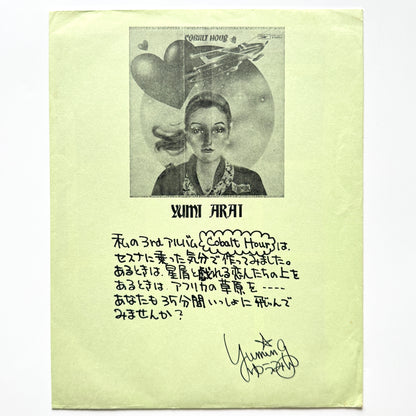 COBALT HOUR
YUMI ARAI
私の3rdアルバム Cobalt Hour は、
セスナに乗った気分で作ってみました。
あるときは、星屑と戯れる恋人たちの上を
あるときは、アフリカの草原を-----
あなたも35分間いっしょに飛んで
みませんか?
Yuming
ゆうみん